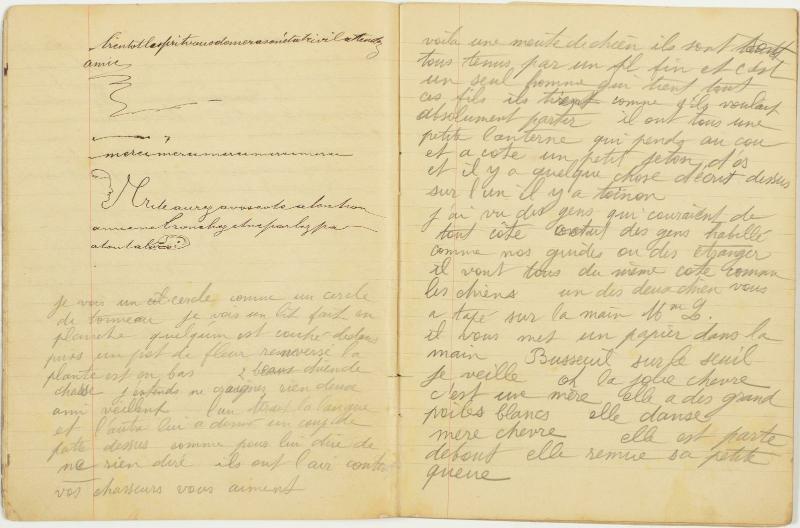 amie
merci merci merci merci merci
je vois un cercle comme un cercle
de tonneau je vois un lit fait en
planche quelqu'un est couché dedans
puis un pot de fleur renversé la
plante est en bas 2 beaux chiens de
chasse j'entends ne craignez rien deux
ami veillent l'un tirait la langue
et l'autre lui a donné un coup de
patte dessus comme pour lui dire de
ne rien dire ils ont l'air content
vos chasseurs vous aiment
voila une meute de chien ils sont
tous tenus par un fil fin et c'est
un seul homme qui tient tout
ces fils ils tirent comme s'ils voulait
absolument partir il ont tous une
petite lanterne qui pends au cou
et a coté un petit jeton d'os
et il y a quelque chose d'écrit dessus
sur l'un il y a toinon
j'ai vu des gens qui couraient de
tout côté des gens habillé
comme nos guides ou des etranger
il vont tous du même coté comme
les chiens un des deux chien vous
a tapé sur la main Mme L.
il vous met un papier dans la
main Busseuil sur le seuil
je veille oh la jolie chevre
c'est une mère elle a des grand
poiles blancs elle danse
mere chevre elle est parte
debout elle remue sa petite
queue